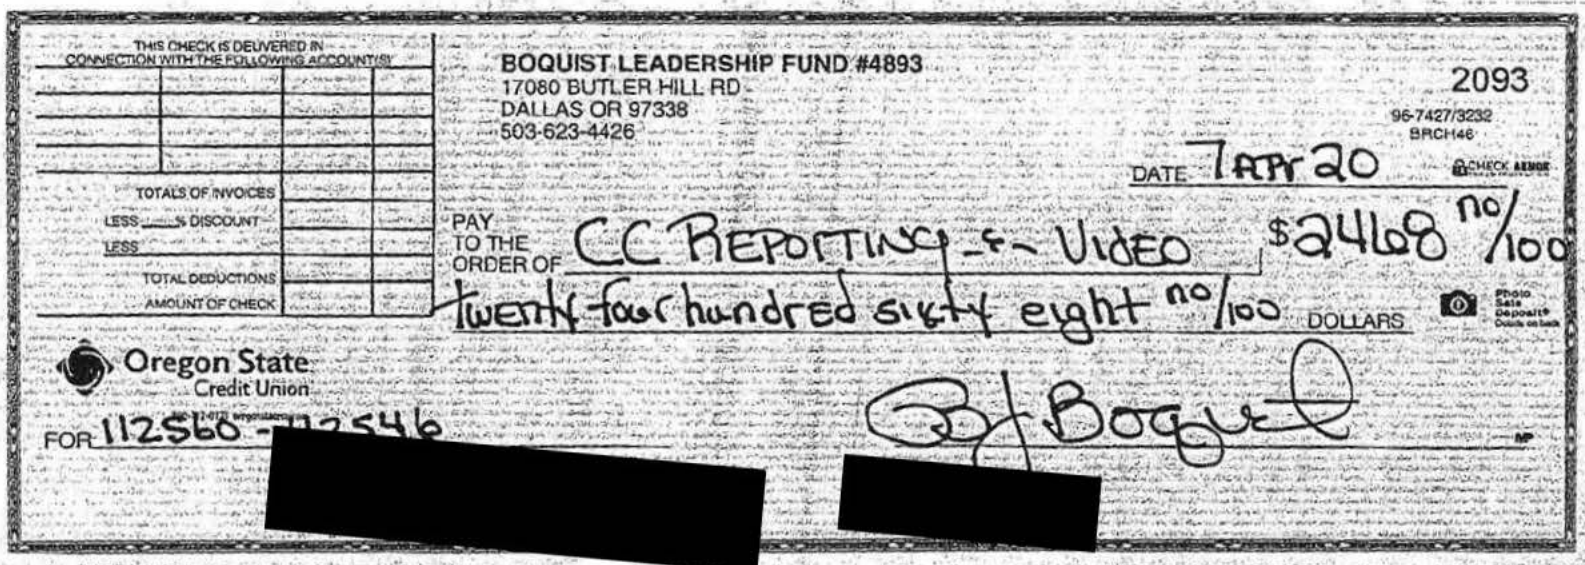 THIS CHECK IS DELIVERED IN
CONNECTION WITH THE FOLLOWING ACCOUNT(S)
TOTALS OF INVOICES
LESS ___ % DISCOUNT
LESS
TOTAL DEDUCTIONS
AMOUNT OF CHECK
BOQUIST LEADERSHIP FUND #4893
17080 BUTLER HILL RD
DALLAS OR 97338
503-623-4426
2093
96-7427/3232
BRCH46
DATE 7 APr 20
CHECK ARMOR
PAY
TO THE
ORDER OF CC REPORTING & VIDEO $2468 no/100
twenty four hundred sixty eight no/100 DOLLARS
Photo
Safe
Deposit®
Details on back
Oregon State
Credit Union
FOR 112560 - 112546
Boquist
MP